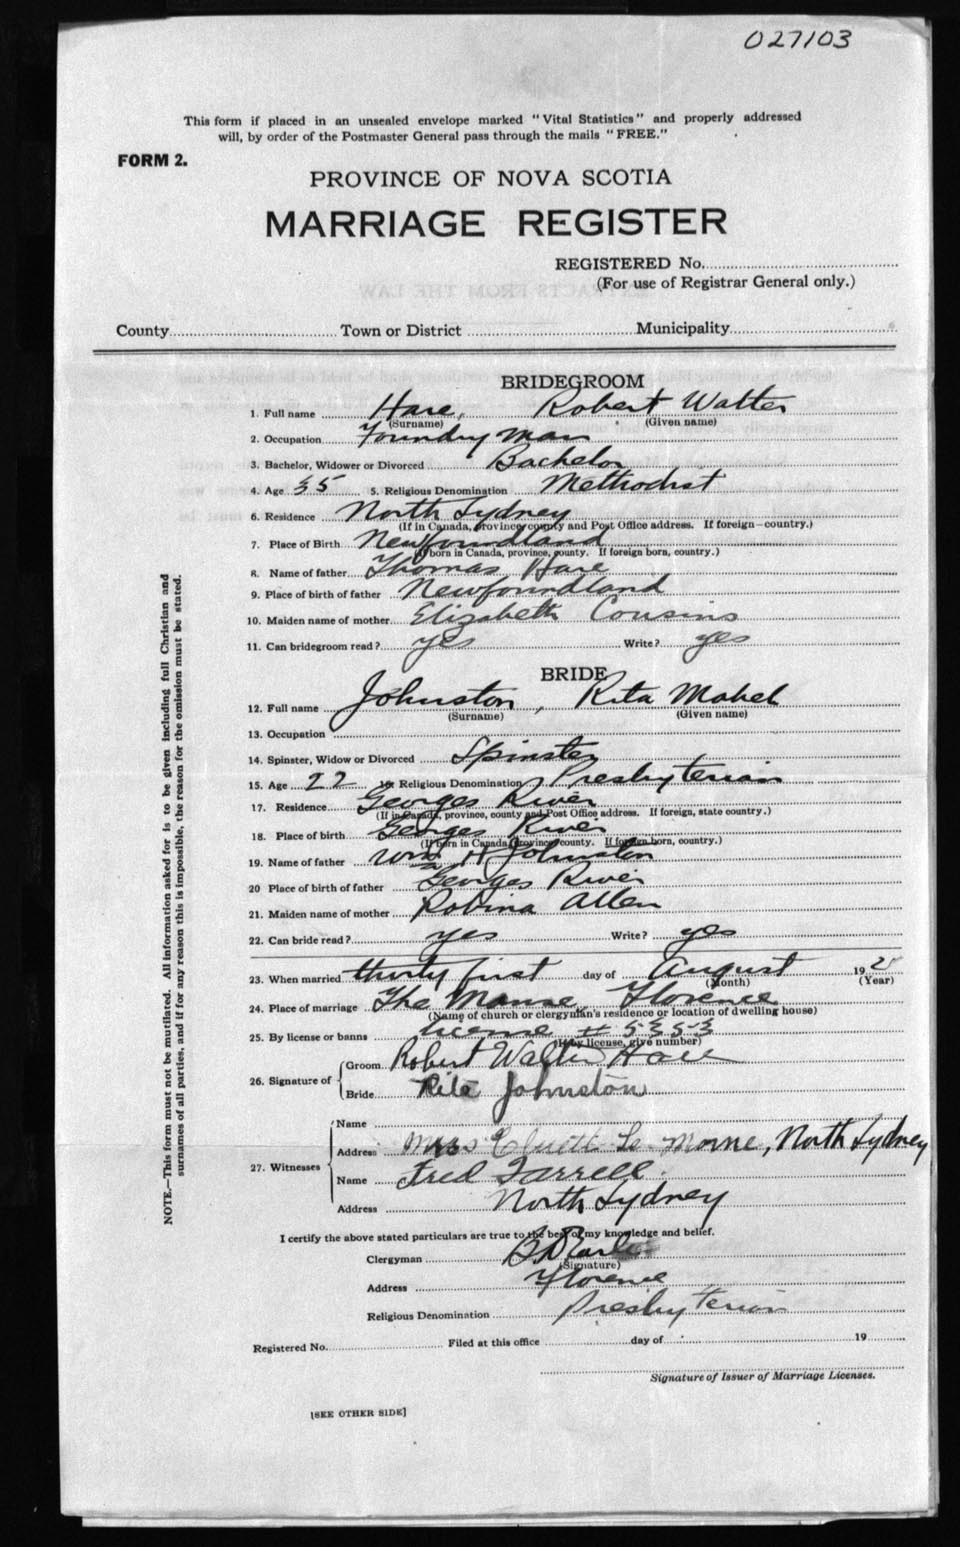 027103
This form if placed in an unsealed envelope marked "Vital Statistics" and properly addressed
will, by order of the Postmaster General pass through the mails "FREE."
FORM 2.
PROVINCE OF NOVA SCOTIA
MARRIAGE REGISTER
REGISTERED No.
(For use of Registrar General only.)
County Town or District Municipality
BRIDEGROOM
1. Full name Hare, Robert Walter
(Surname) (Given name)
2. Occupation Foundry Man
3. Bachelor, Widower or Divorced Bachelor
4. Age 35 5. Religious Denomination Methodist
6. Residence North Sydney
(If in Canada, province, county and Post Office address. If foreign—country.)
7. Place of Birth Newfoundland
(If born in Canada, province, county. If foreign born, country.)
8. Name of father Thomas Hare
9. Place of birth of father Newfoundland
10. Maiden name of mother Elizabeth Cousins
11. Can bridegroom read? yes Write? yes
BRIDE
12. Full name Johnston, Rita Mabel
(Surname) (Given name)
13. Occupation
14. Spinster, Widow or Divorced Spinster
15. Age 22 16 Religious Denomination Presbyterian
17. Residence Georges River
(If in Canada, province, county and Post Office address. If foreign, state country.)
18. Place of birth Georges River
(If born in Canada, province, county. If foreign born, country.)
19. Name of father Wm H Johnston
20 Place of birth of father Georges River
21. Maiden name of mother Robina Allen
22. Can bride read? yes Write? yes
23. When married thirty first day of August 192
(Month) (Year)
24. Place of marriage The Manse, Florence
(Name of church or clergyman's residence or location of dwelling house)
25. By license or banns license # 5353
(If by license, give number)
26. Signature of Groom Robert Walter Hare
Bride Rita Johnston
27. Witnesses Name
Address Mrs Le Morne, North Sydney
Name Fred Farrell.
Address North Sydney
I certify the above stated particulars are true to the best of my knowledge and belief.
Clergyman B.D. Earle
(Signature)
Address Florence
Religious Denomination Presbyterian
Registered No. Filed at this office day of 19
Signature of Issuer of Marriage Licenses.
[SEE OTHER SIDE]
NOTE.—This form must not be mutilated. All information asked for is to be given including full Christian and
surnames of all parties, and if for any reason this is impossible, the reason for the omission must be stated.